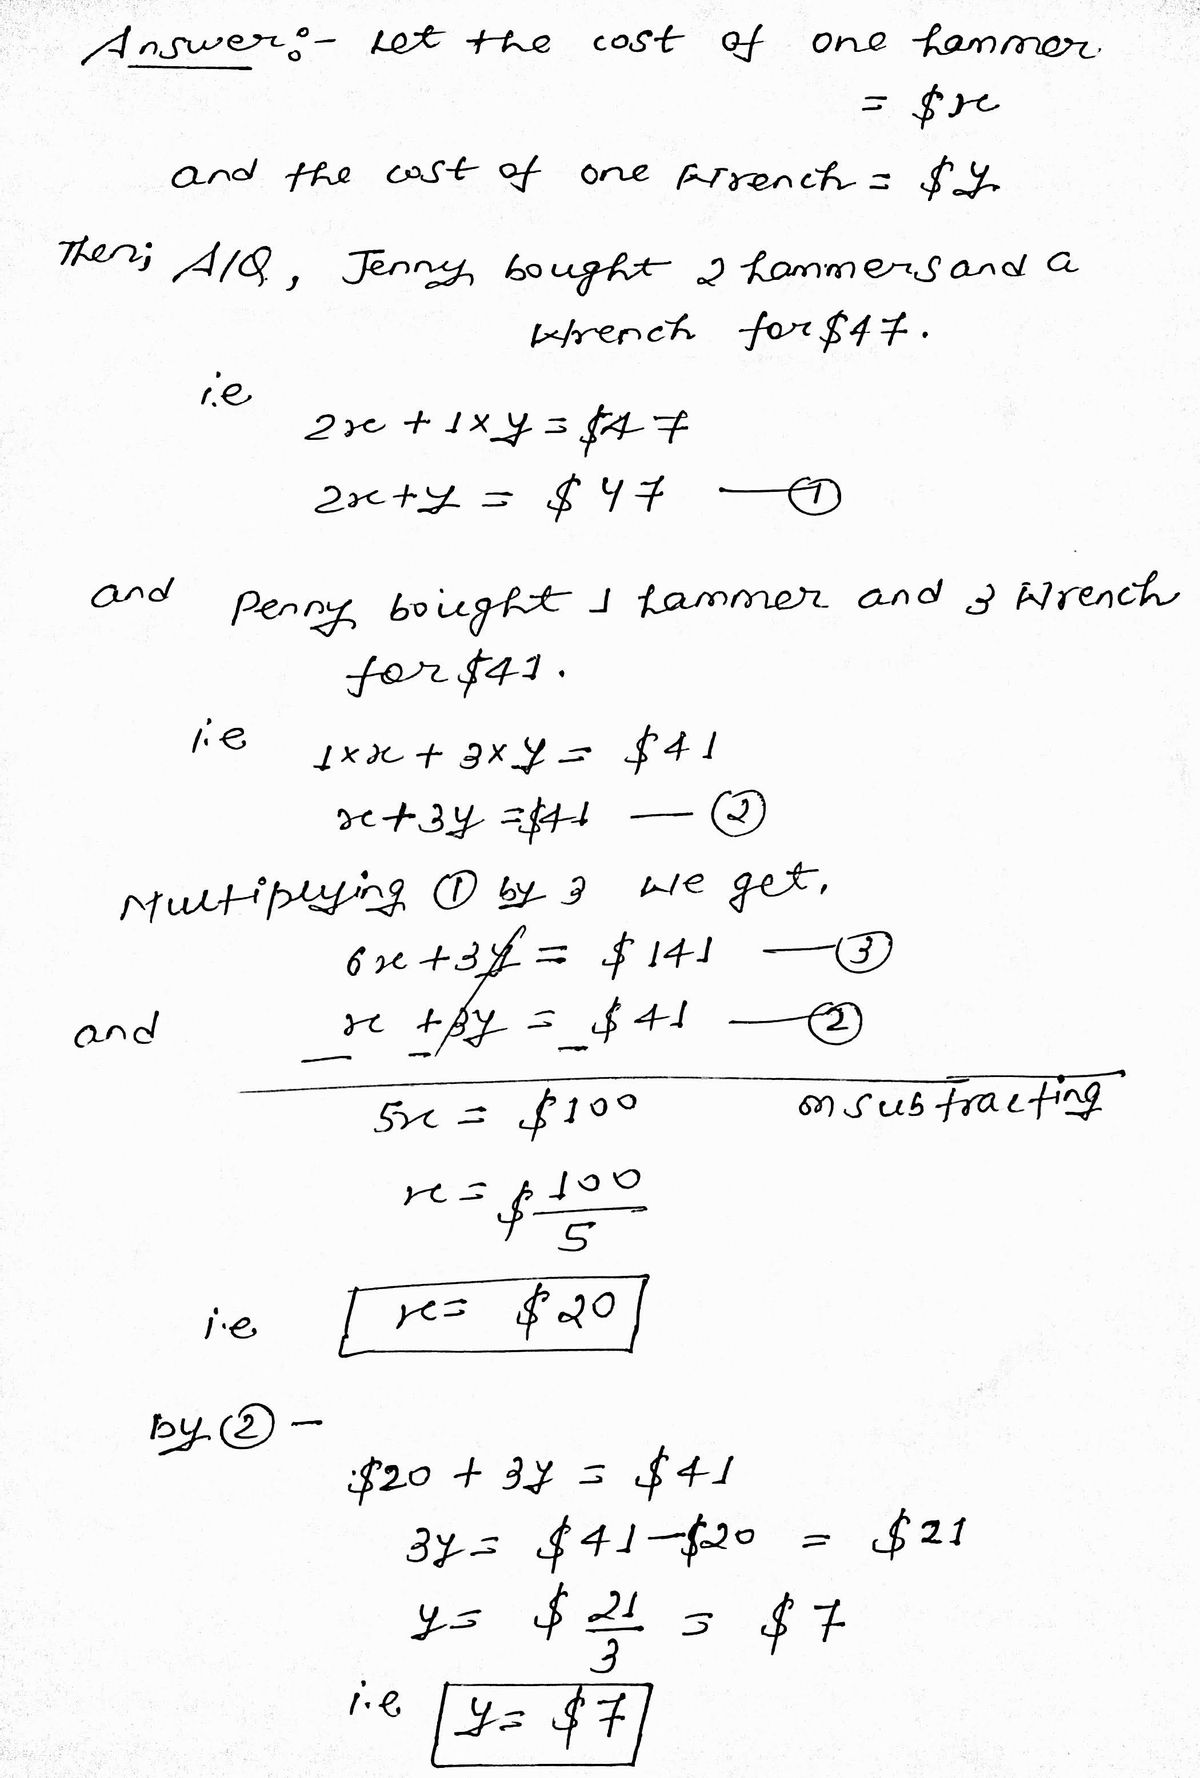 Answer:- Let the cost of one hammer
= $x
and the cost of one wrench = $y.
Then; A/Q, Jenny bought 2 hammers and a
wrench for $47.
i.e
2x + 1×y = $47
2x+y = $47 —①
and Penny bought 1 hammer and 3 wrench
for $41.
i.e
1×x + 3×y = $41
x+3y =$41 —②
Multiplying ① by 3 we get,
6x+3y = $141 —③
and x +3y = $41 —②
— — —
5x = $100 on subtracting
x = $100/5
i.e x = $20
by ② —
$20 + 3y = $41
3y = $41-$20 = $21
y = $21/3 = $7
i.e y = $7